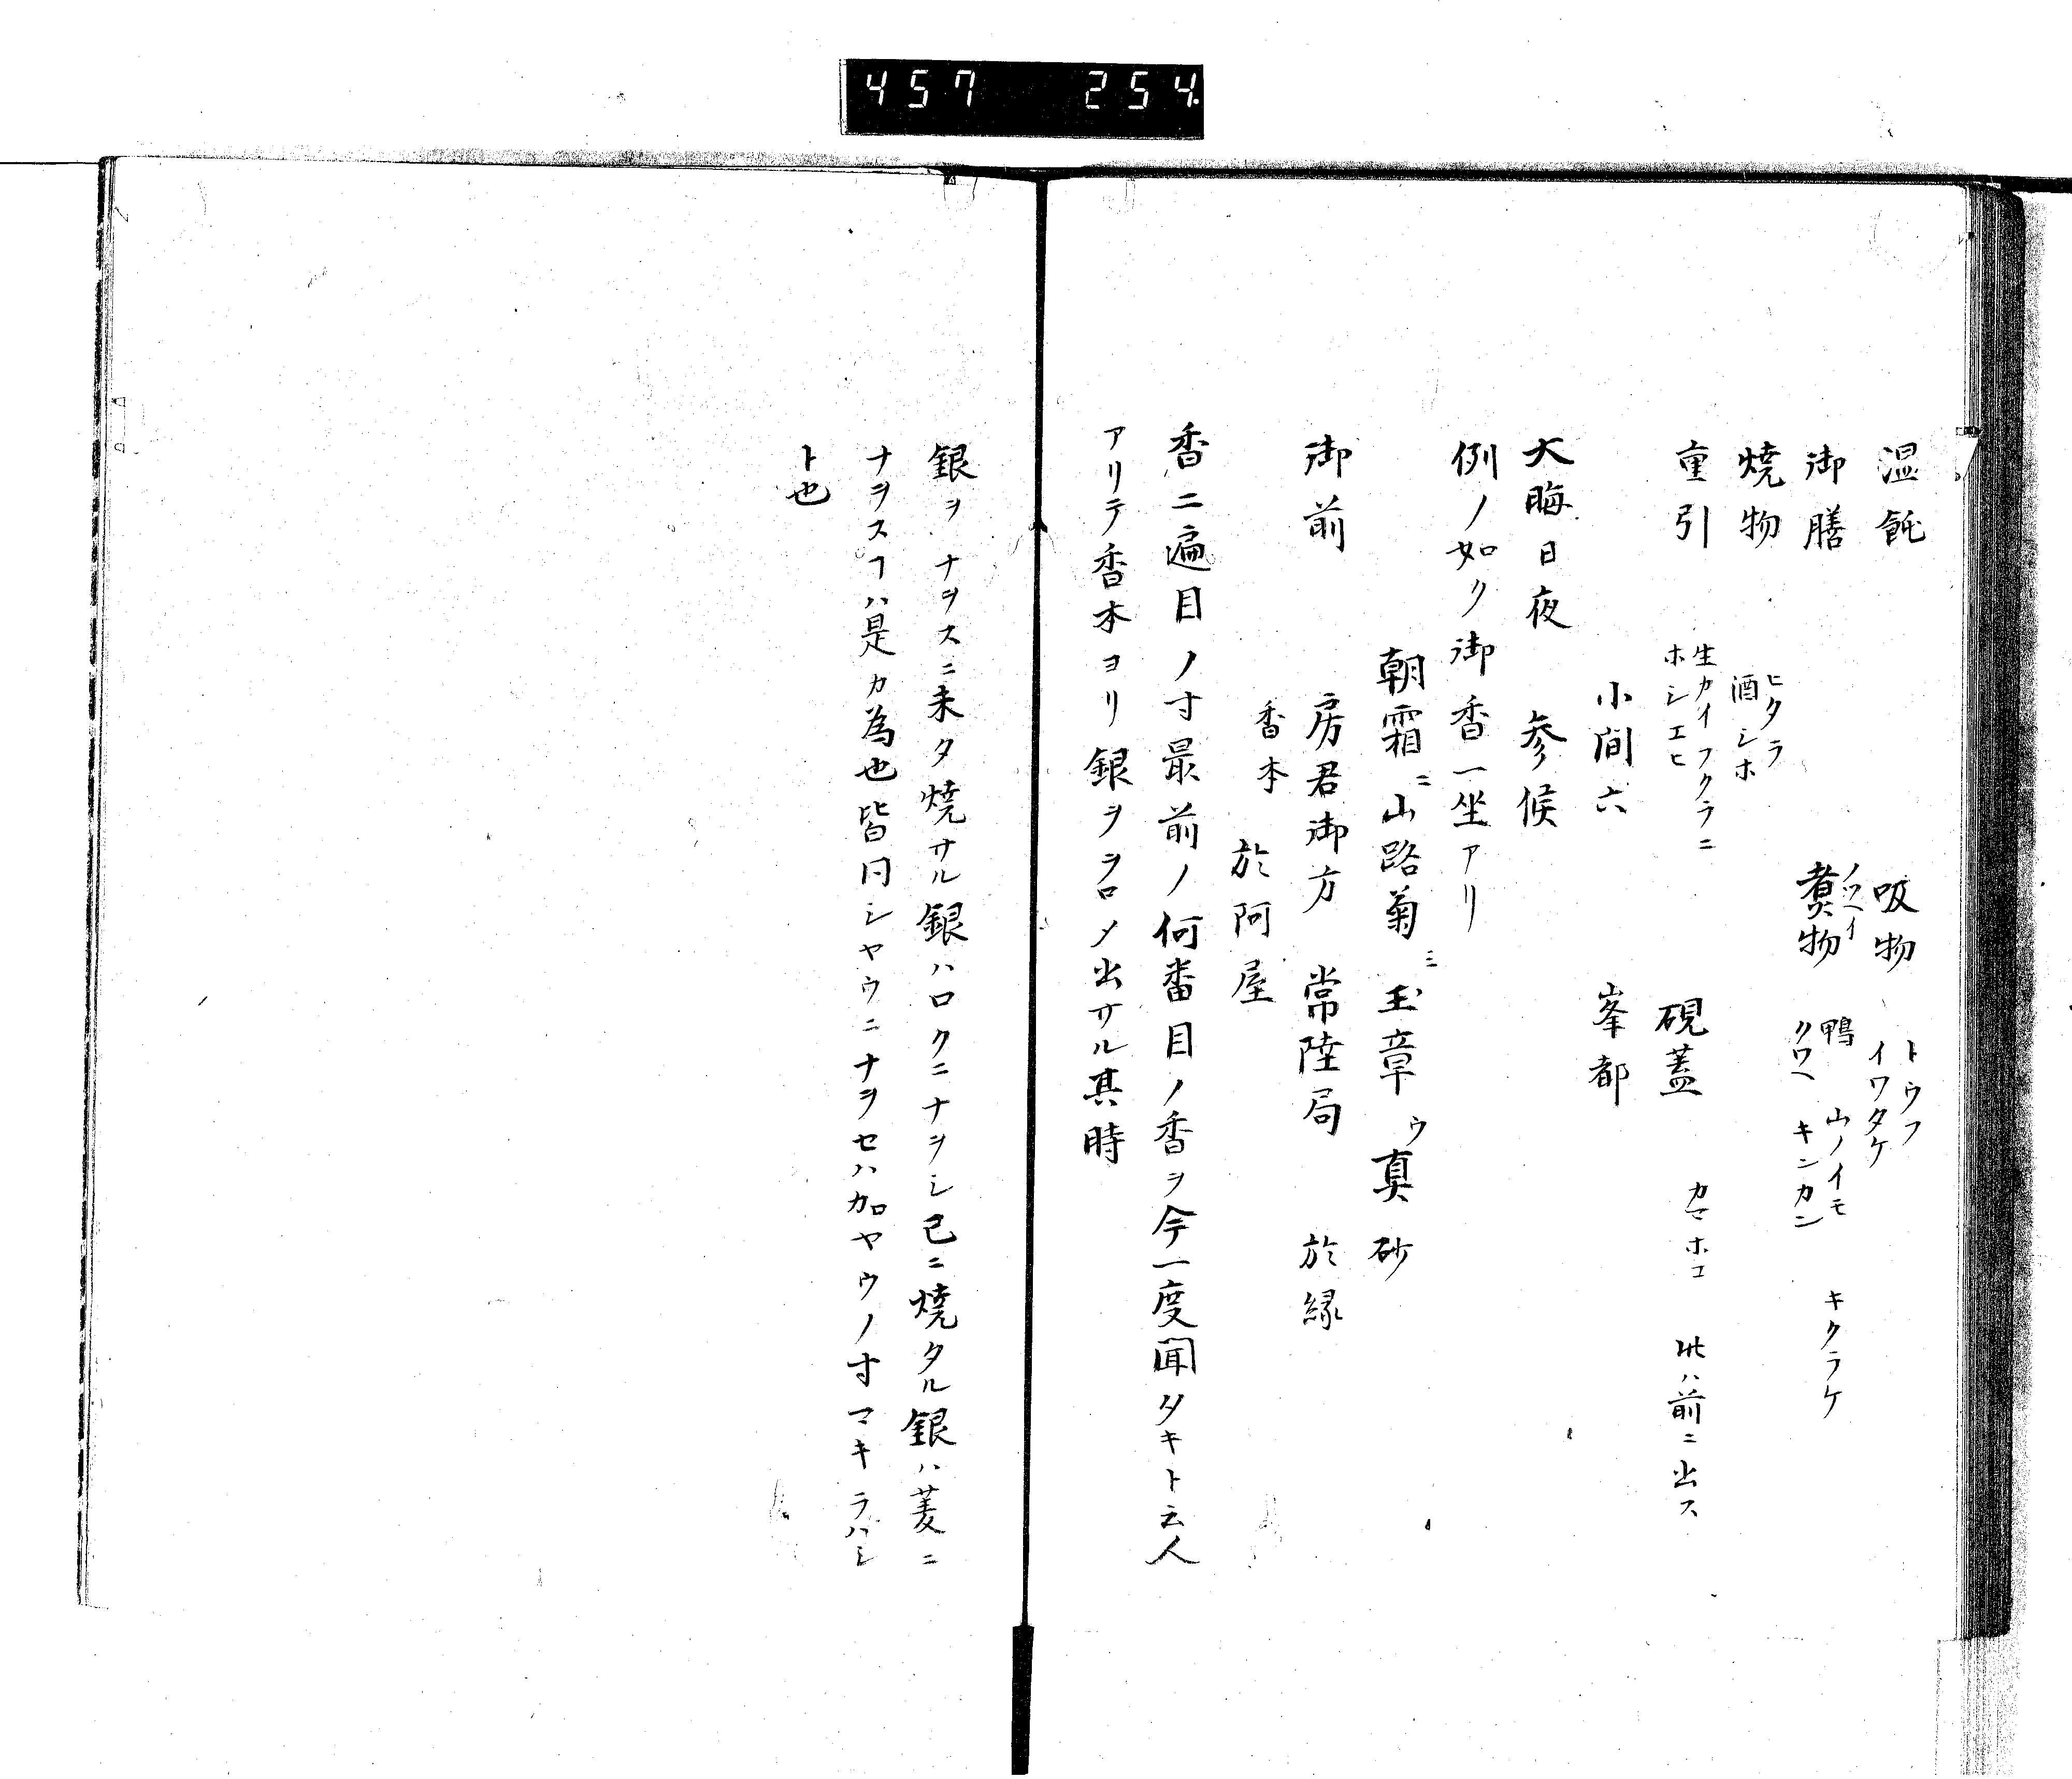 457 254
温飩 吸物 トウフ イワタケ
御膳 煑物 ノツヘイ 鴨 山ノイモ キクラケ クワヘ キンカン
焼物 ヒタラ 酒シホ
重引 生カイフクラニ ホシエヒ 硯蓋 カマホコ 此ハ前ニ出ス
小間六 峯都
大晦日夜 参候
例ノ如ク御香一坐アリ
朝霜ニ 山路菊ミ 玉章 ウ真砂
御前 房君御方 常陸局 於縁
香本 於阿屋
香二遍目ノ寸最前ノ何番目ノ香ヲ今一度聞タキト云人
アリテ香本ヨリ銀ヲヲロメ出サル其時
銀ヲナヲスニ未タ焼サル銀ハロクニナヲシ已ニ焼タル銀ハ菱ニ
ナヲスヿハ是カ為也皆同シヤウニナヲセハ加ヤウノ寸マキラハシ
ト也